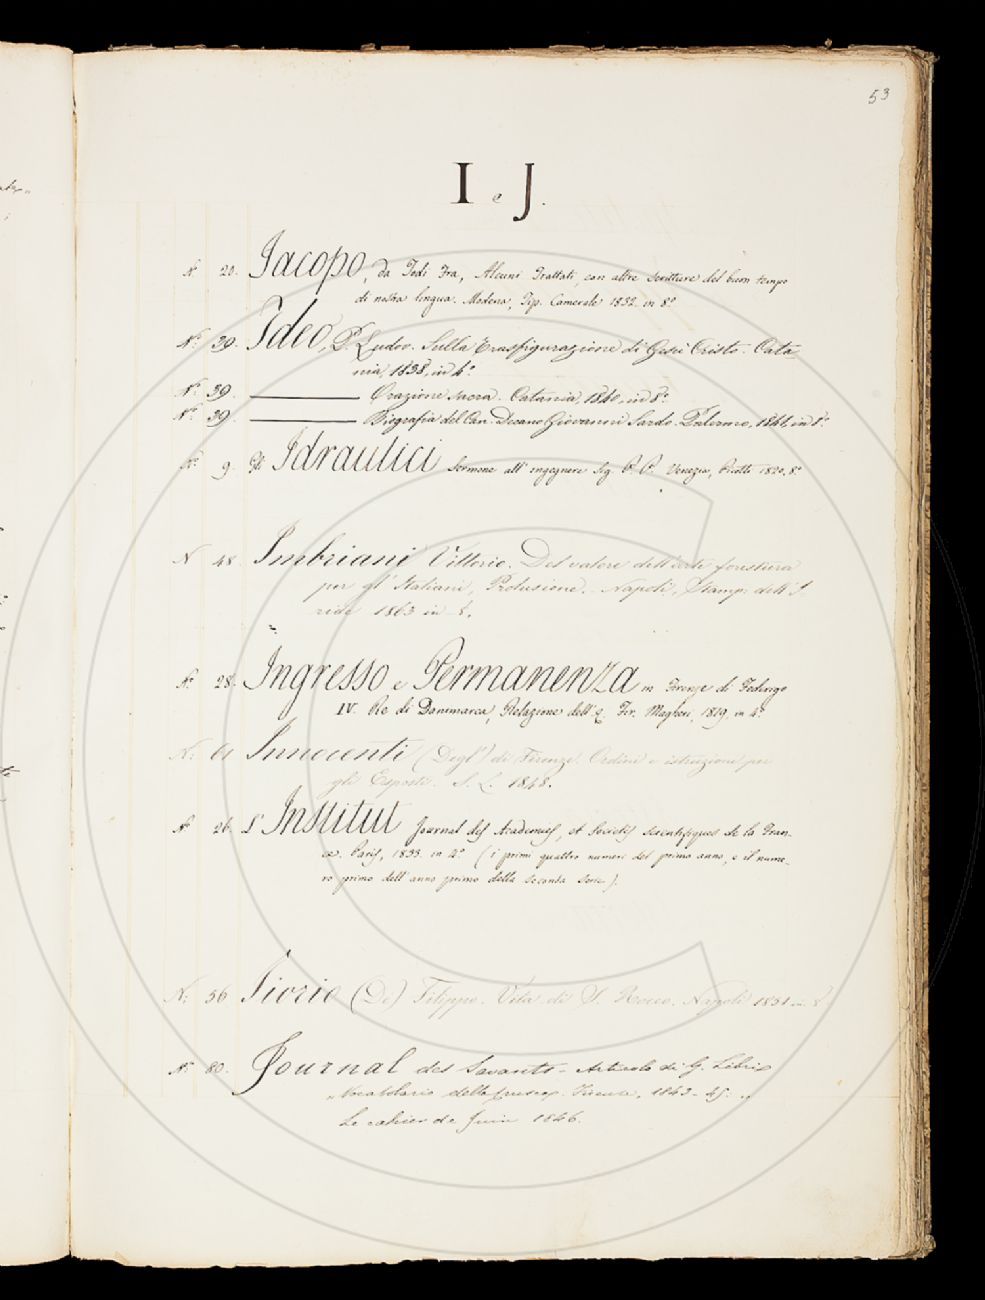 53
I e J.
N. 20. Jacopo, da Todi Fra, Alcuni Trattati, con altre scritture del buon tempo
di nostra lingua. Modena, Tip. Camerale 1832. in 8.º
N.º 39. Ideo, P. Ludov. Sulla Trasfigurazione di Gesù Cristo. Cata
nia, 1838, in 4.º
N.º 39. Orazione sacra. Catania, 1840, in 8.º
N.º 39 Biografia del Can. Decano Giovanni Sardo. Palermo, 1841, in 8.º
N.º 9. Gl' Idraulici Sermone all' ingegnere Sig. P. P. Venezia, Picotti 1820, 8.º
N 48. Imbriani Vittorio. Del valore dell'arte forestiera
per gl' Italiani, Prolusione. - Napoli, Stamp. dell' I-
ride 1863 in - 8.
N.º 28. Ingresso e Permanenza in Firenze di Federigo
IV. Re di Danimarca, Relazione dell' Fir. Magheri, 1819, in 4.º
N: 61 Innocenti (Degl') di Firenze. Ordini e istruzione per
gli Esposti. S. L. 1848.
N.º 26. L' Institut Journal des Academies, et Societés scientifiques de la Fran-
ce. Paris, 1833. in 4.º (i primi quattro numeri del primo anno, e il nume-
ro primo dell' anno primo della seconda serie).
N: 56 Iiorio (De) Filippo. Vita di S. Rocco. Napoli 1851 in 8
N.º 80. Journal des Savants - Articolo di G. Libri
„Vocabolario della Crusca, Firenze, 1843-45. „
Le cahier de Juin 1846.